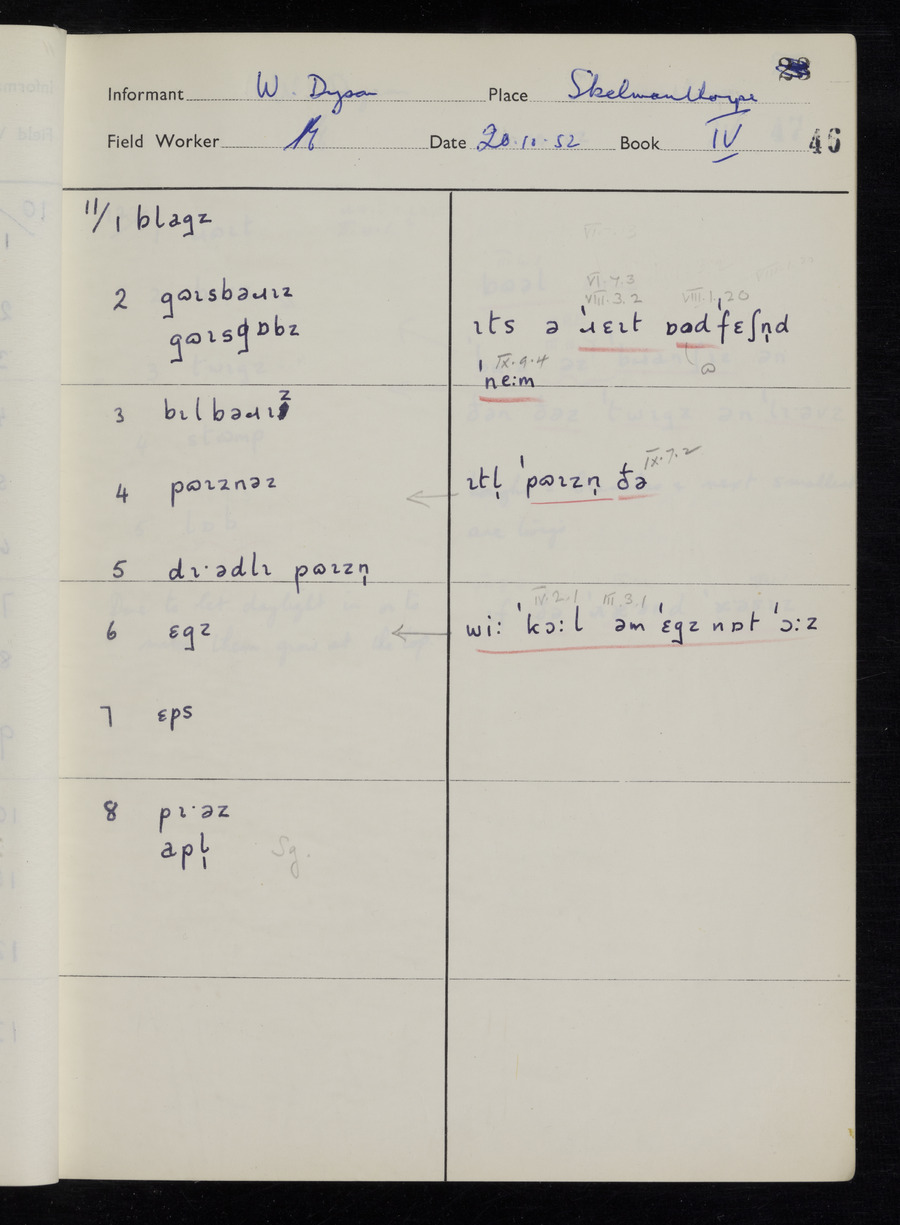 Informant W. Dyson Place Skelmanthorpe
Field Worker Date 20.11.52 Book IV 46
11/1 blagz
2 gɷɪsbəɹɪz
VI.7.3
VIII.3.2 VIII.1.20
gɷɪsgɒbz ɪts ə ˈɹɛɪt ɒəd ˈfɛʃn̩d
ɷ
ˈne:m IX.9.4
3 bɪlbəɹɪz
4 pɷɪznəz ɪtl̩ ˈpɷɪzn̩ ðə IX.7.2
5 dɪ·ədlɪ pɷɪzn̩
IV.2.1 III.3.1
6 ɛgz wi: ˈkɔ:l əm ˈɛgz nɒt ˈɔ:z
7 ɛps
8 pɪ·əz
apl̩ Sg.